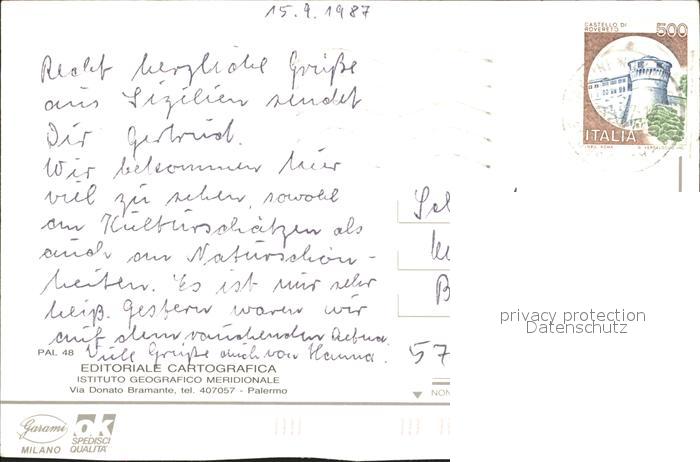 15.9.1987
CASTELLO DI
ROVERETO
500
ITALIA
Recht herzliche Grüße
aus Sizilien sendet
Dir Gertrud.
Wir bekommen hier
viel zu sehen, sowohl
an Kulturschätzen als
auch an Naturschön-
heiten. Es ist nur sehr
heiß. Gestern waren wir
auf dem rauchenden Aetna.
Viele Grüße auch von Hanna.
57
privacy protection
Datenschutz
PAL 48
EDITORIALE CARTOGRAFICA
ISTITUTO GEOGRAFICO MERIDIONALE
Via Donato Bramante, tel. 407057 - Palermo
NON
Garami
MILANO
ok
SPEDISCI
QUALITÀ